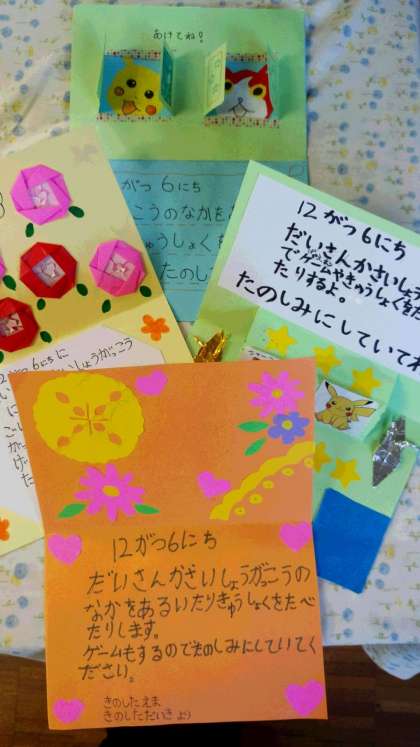 あけてね!
がつ6にち
こうのなかをあ
ゅうしょくを
たのし
12がつ6にち
だいさんかさいしょう
でゲームやきゅうしょくをた
たりするよ。
たのしみにしていてね
12がつ6にちに
しょうがっこう
12がつ6にち
だいさんかさいしょうがっこうの
なかをあるいたりきゅうしょくをたべ
たりします。
ゲームもするのでたのしみにしていてく
ださい。
きのしたえま
きのしただいき より